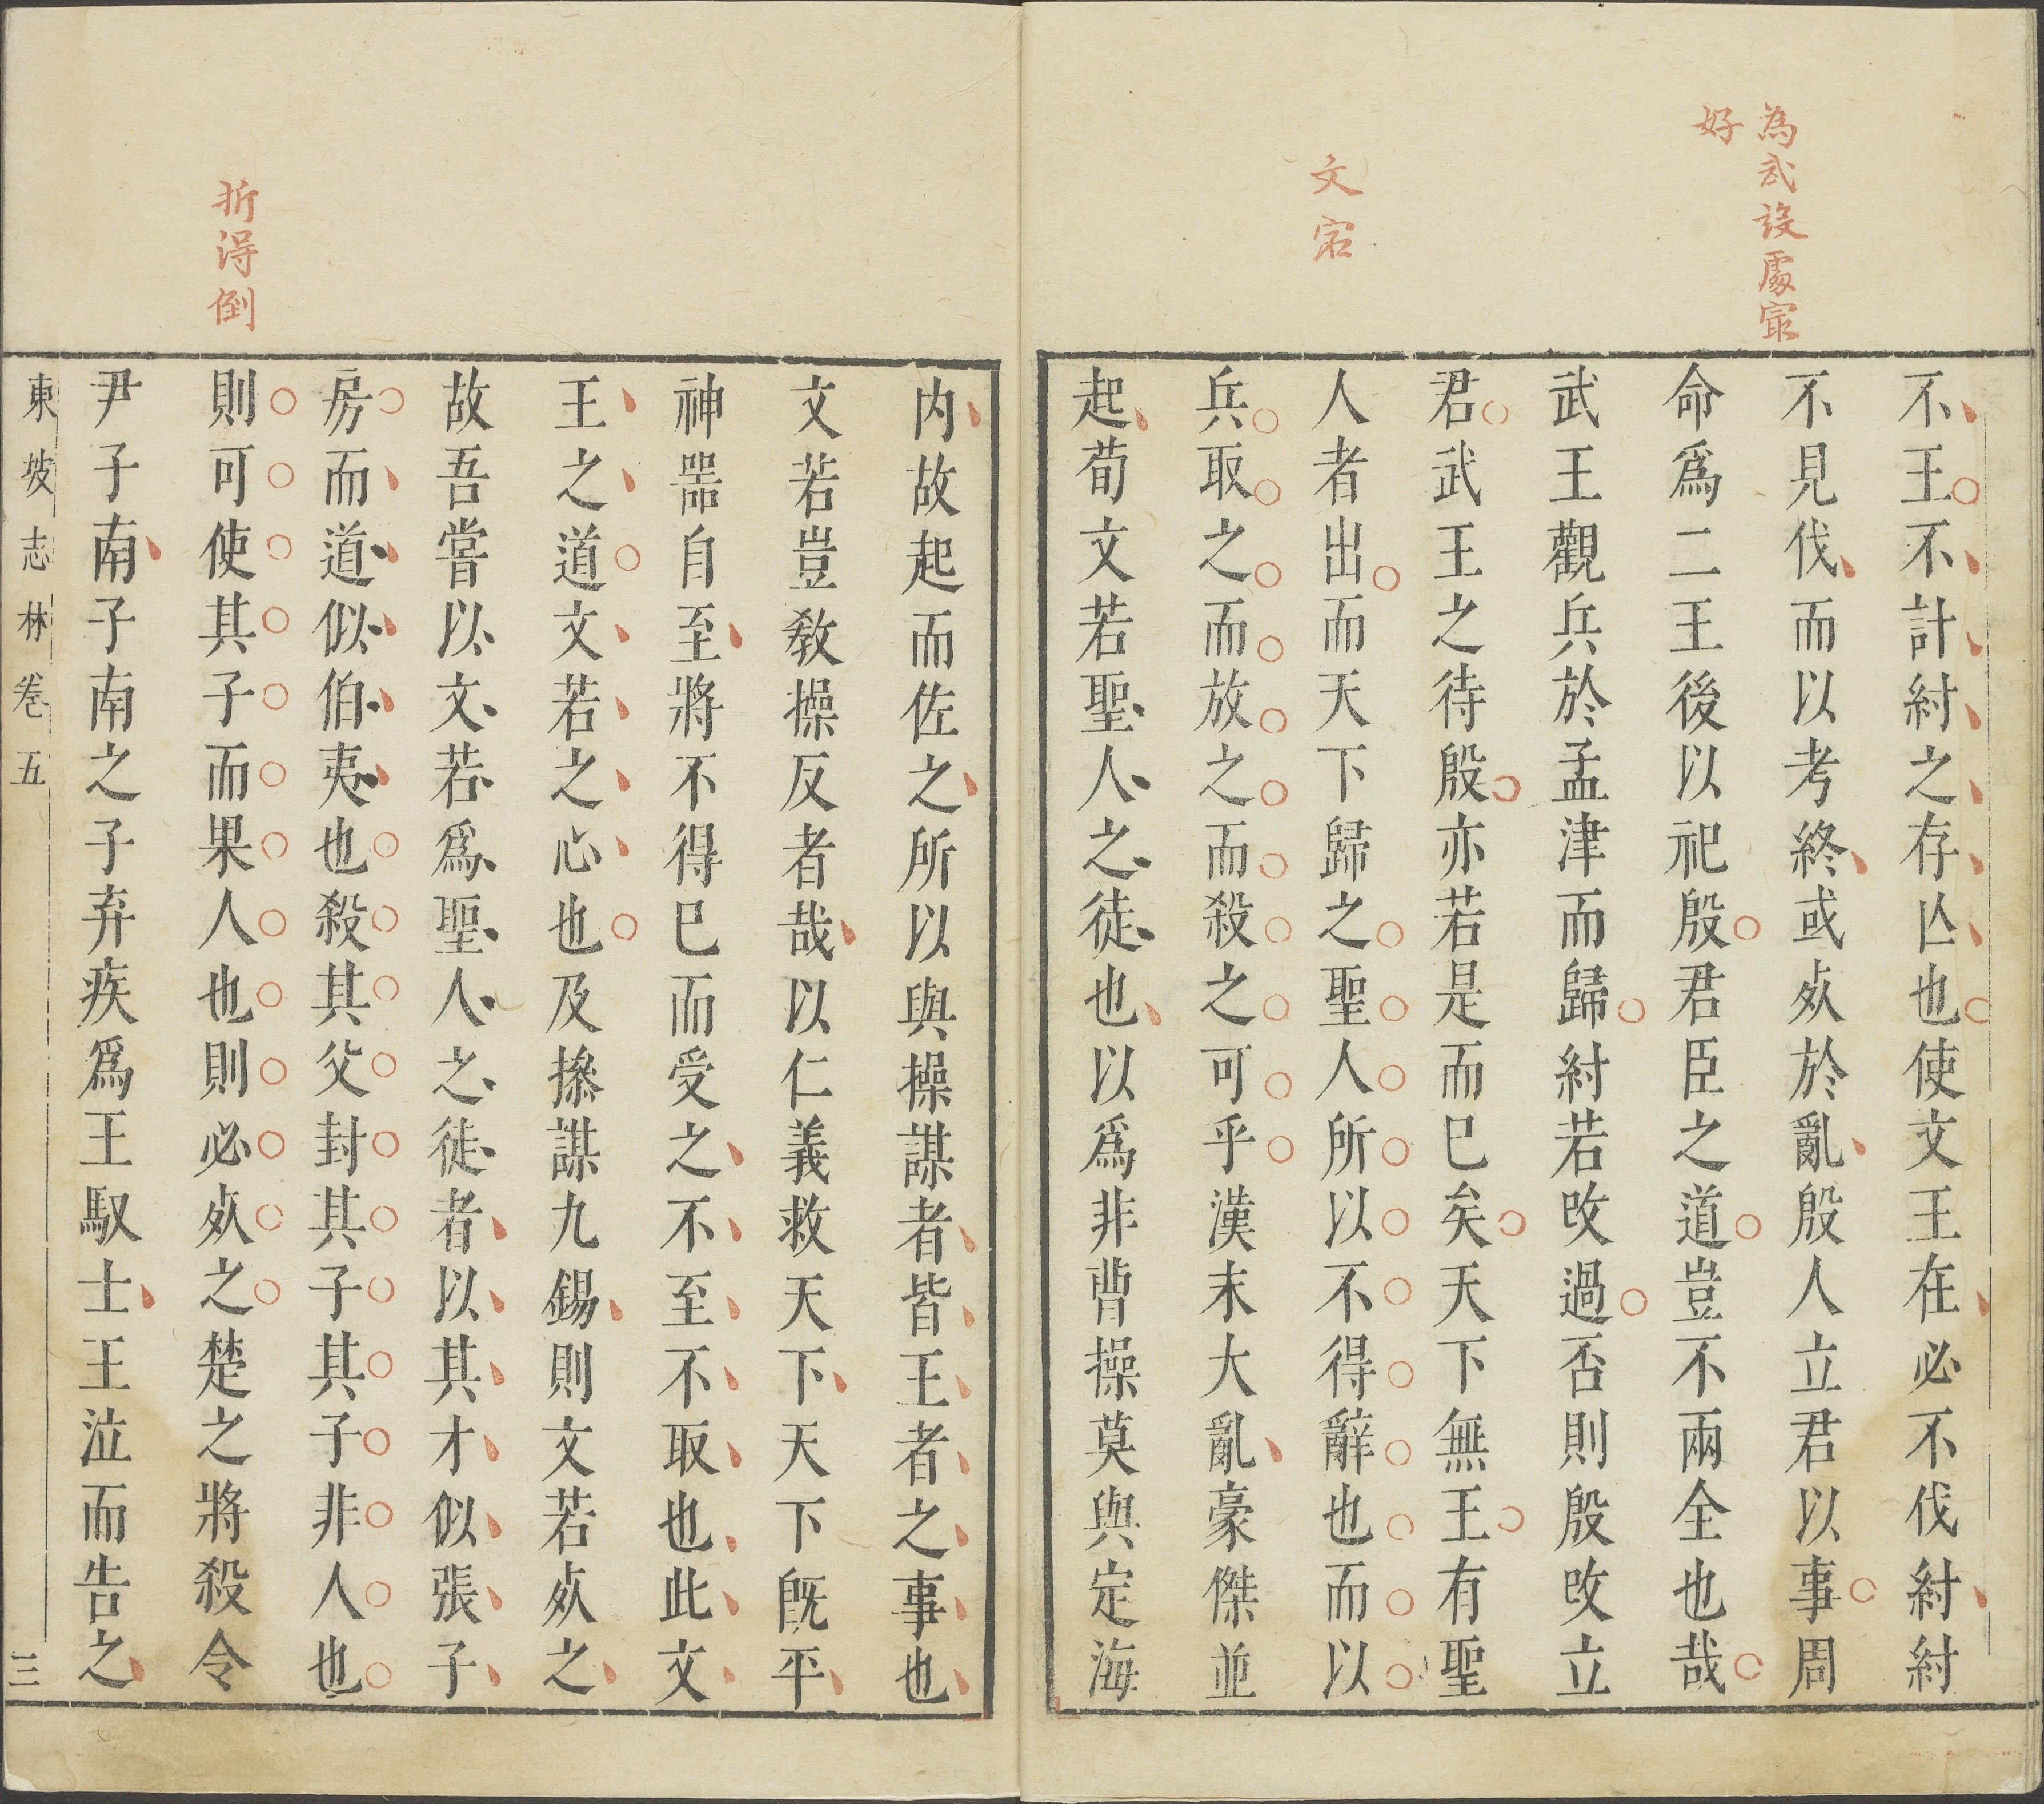 為武設處㝡
好
文宻
不王不計紂之存亾也使文王在必不伐紂紂
不見伐而以考終或𣦸於亂殷人立君以事周
命爲二王後以祀殷君臣之道豈不兩全也哉
武王觀兵於孟津而歸紂若改過否則殷改立
君武王之待殷亦若是而已矣天下無王有聖
人者出而天下歸之聖人所以不得辭也而以
兵取之而放之而殺之可乎漢末大亂豪傑並
起荀文若聖人之徒也以爲非曹操莫與定海
折得倒
内故起而佐之所以與操謀者皆王者之事也
文若豈敎操反者哉以仁義救天下天下旣平
神噐自至將不得已而受之不至不取也此文
王之道文若之心也及操謀九錫則文若𣦸之
故吾嘗以文若爲聖人之徒者以其才似張子
房而道似伯夷也殺其父封其子其子非人也
則可使其子而果人也則必𣦸之楚之將殺令
尹子南子南之子弃疾爲王馭士王泣而告之
東坡志林卷五
三